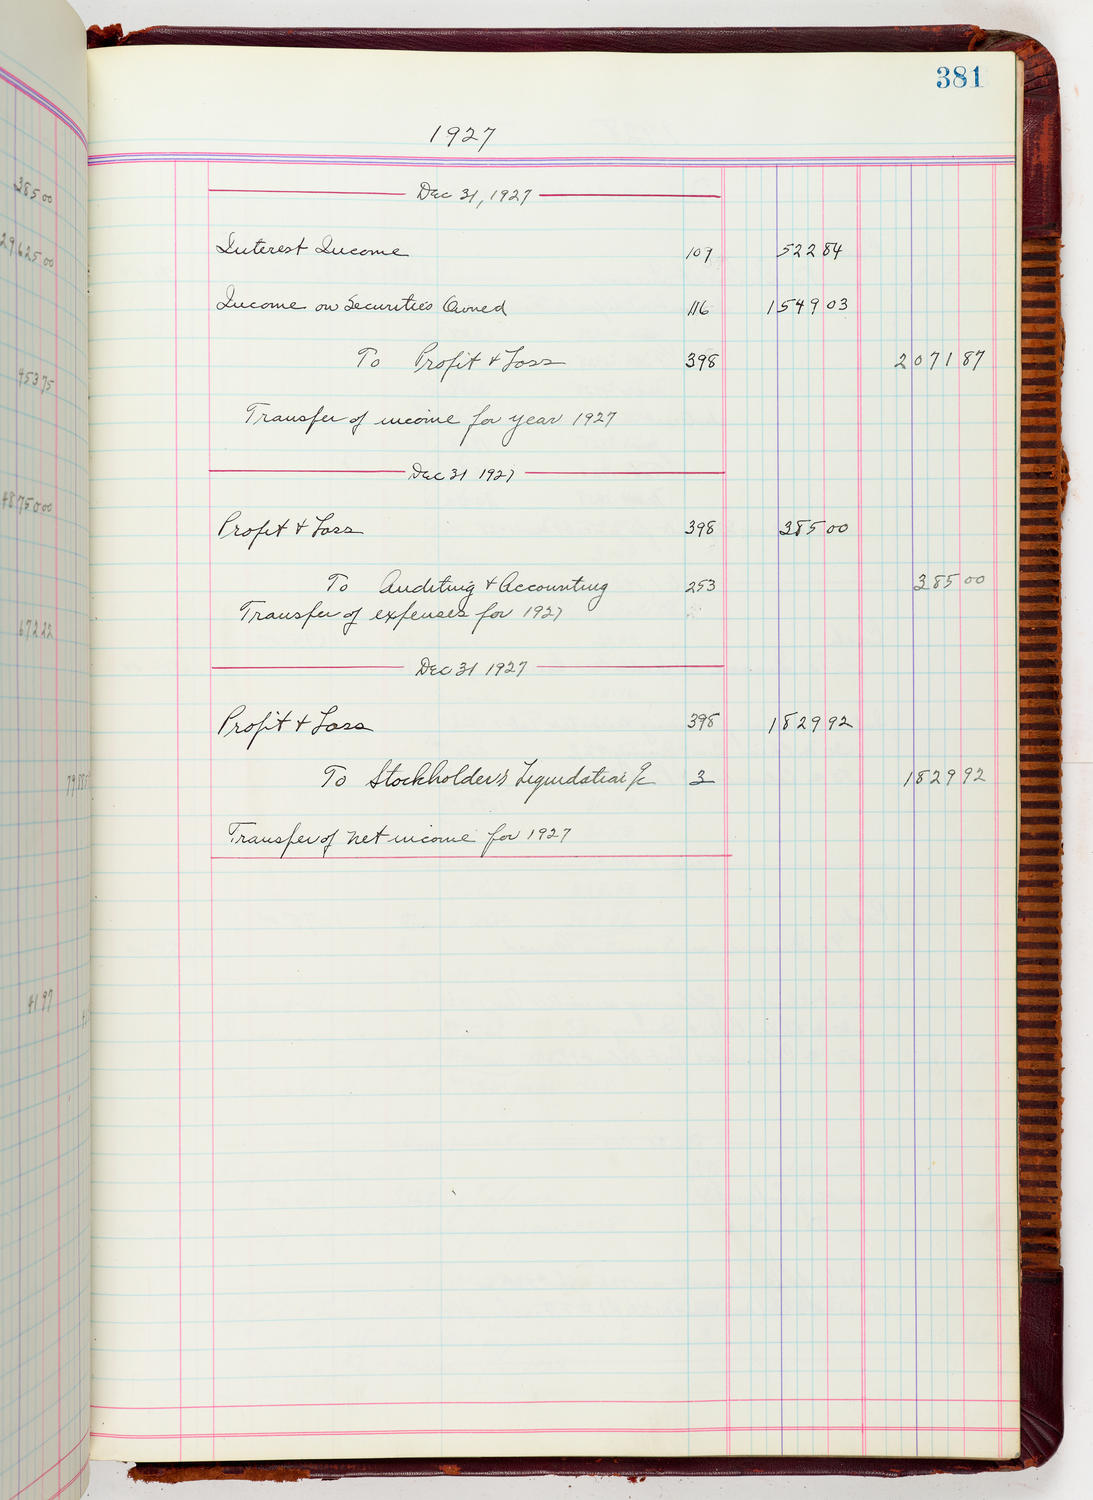 381
1927
Dec 31, 1927
Interest Income 109 522 84
Income on Securities Owned 116 1549 03
To Profit & Loss 398 2071 87
Transfer of income for year 1927
Dec 31 1927
Profit & Loss 398 385 00
To Auditing & Accounting 253 385 00
Transfer of expenses for 1927
Dec 31 1927
Profit & Loss 398 1829 92
To Stockholder's Liquidation a/c 3 1829 92
Transfer of net income for 1927
385 00
29625 00
453 75
48750 00
672 22
41 97